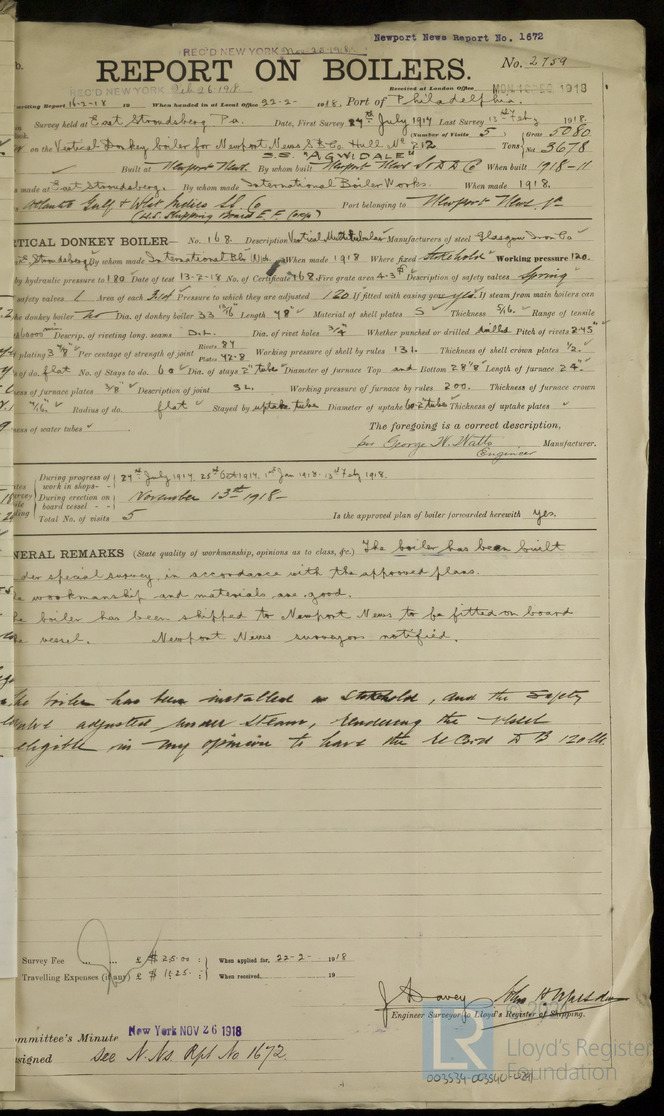 Newport News Report No. 1672
REC'D NEW YORK Nov 25 1918
REPORT ON BOILERS. No. 2759
REC'D NEW YORK Feb 26 1918 Received at London Office MON 1918
writing Report 16-2-18 19 When handed in at Local Office 22-2- 1918. Port of Philadelphia.
Survey held at East Stroudsberg Pa. Date, First Survey July 1917 Last Survey 13th Feby 1918.
(Number of Visits 5) Gross 5080
on the Vertical Donkey boiler for Newport News S.B. Co. Hull No 212 Tons Net 3678
S.S. "AGWIDALE"
Built at Newport News. By whom built Newport News S & D D Co When built 1918-11
made at East Stroudsberg. By whom made International Boiler Works. When made 1918.
Atlantic Gulf & West Indies SS. Co Port belonging to Newport News Va
(U.S. Shipping Board E F Corp)
TICAL DONKEY BOILER— No. 168 Description Vertical Multitubular Manufacturers of steel Glasgow Iron Co
Stroudsberg By whom made International Blr Wks. When made 1918 Where fixed Stokehold Working pressure 120.
by hydraulic pressure to 180 Date of test 13-2-18 No. of Certificate 168 Fire grate area 4.3 Description of safety valves Spring
safety valves 1 Area of each 3.14 Pressure to which they are adjusted 120 If fitted with easing gear yes. If steam from main boilers can
the donkey boiler no Dia. of donkey boiler 33 13/16" Length 48" Material of shell plates S Thickness 5/16. Range of tensile
60000 Descrip. of riveting long. seams D.L. Dia. of rivet holes 3/4" Whether punched or drilled drilled Pitch of rivets 2.45"
plating 3 7/8" Per centage of strength of joint Rivets 87 Plates 72.8 Working pressure of shell by rules 131. Thickness of shell crown plates 1/2.
of do. flat No. of Stays to do. 60 Dia. of stays 2" tube Diameter of furnace Top and Bottom 28 1/8 Length of furnace 24"
ness of furnace plates 3/8" Description of joint S L. Working pressure of furnace by rules 200. Thickness of furnace crown
7/16. Radius of do. flat Stayed by uptake tubes Diameter of uptake 60-2" tubes Thickness of uptake plates
ness of water tubes
The foregoing is a correct description,
per George W. Watts Manufacturer.
Engineer
During progress of work in shops - - July 1917, 25th Oct 1917, 1st Jan 1918. 13th Feby 1918.
During erection on board vessel - - November 13th 1918—
Total No. of visits 5 Is the approved plan of boiler forwarded herewith yes.
NERAL REMARKS (State quality of workmanship, opinions as to class, &c.) The boiler has been built
der special survey in accordance with the approved plans.
workmanship and materials are good.
boiler has been shipped to Newport News to be fitted on board
vessel. Newport News surveyors notified.
The boiler has been installed in Stokehold, and the Safety
adjusted under steam, rendering the vessel
eligible in my opinion to have the record D B 120 lb.
Survey Fee ... ... £ $ 25.00 : When applied for, 22-2- 1918
Travelling Expenses (if any) £ $ 10.25 : When received, 19
J Davey
Engineer Surveyor to Lloyd's Register of Shipping.
ommittee's Minute New York NOV 26 1918
signed see N.Ns. Rpt No 1672.
LR
© 2021
Lloyd's Register
Foundation
003534-003540-0291